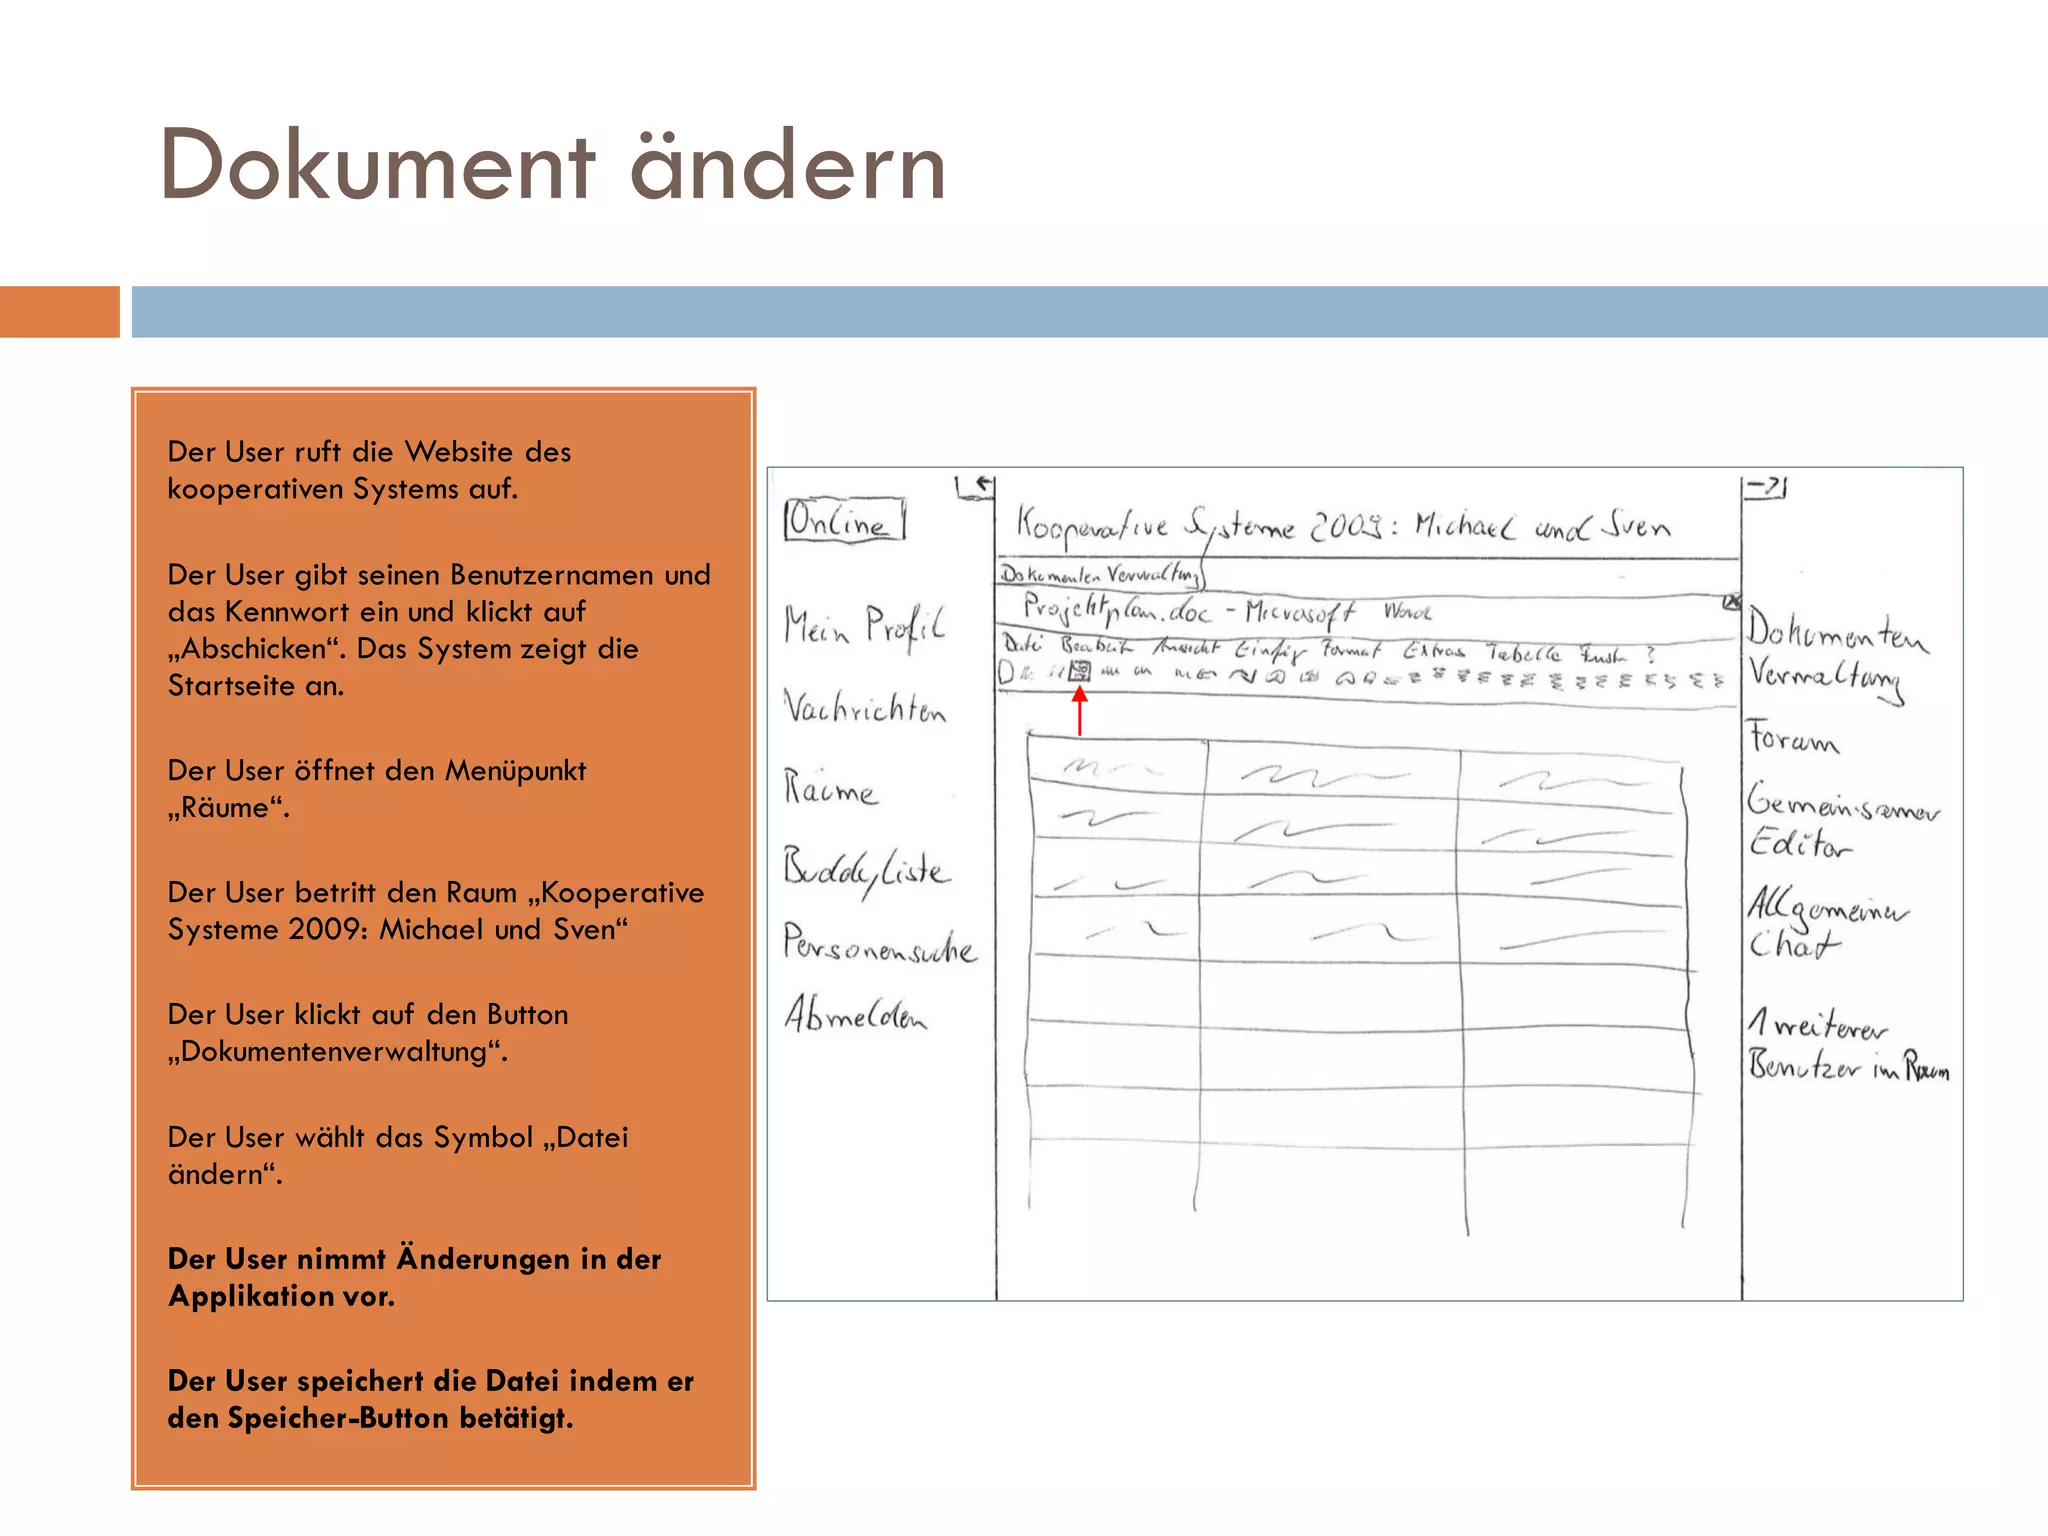 Dokument ändern
Der User ruft die Website des
kooperativen Systems auf.
Der User gibt seinen Benutzernamen und
das Kennwort ein und klickt auf
„Abschicken“. Das System zeigt die
Startseite an.
Der User öffnet den Menüpunkt
„Räume“.
Der User betritt den Raum „Kooperative
Systeme 2009: Michael und Sven“
Der User klickt auf den Button
„Dokumentenverwaltung“.
Der User wählt das Symbol „Datei
ändern“.
Der User nimmt Änderungen in der
Applikation vor.
Der User speichert die Datei indem er
den Speicher-Button betätigt.
Online
Mein Profil
Nachrichten
Räume
Buddyliste
Personensuche
Abmelden
Kooperative Systeme 2009: Michael und Sven
Dokumenten Verwaltung
Projektplan.doc - Microsoft Word
Datei Bearbeit Ansicht Einfüg Format Extras Tabelle ?
Dokumenten
Verwaltung
Forum
Gemeinsamer
Editor
Allgemeiner
Chat
1 weiterer
Benutzer im Raum